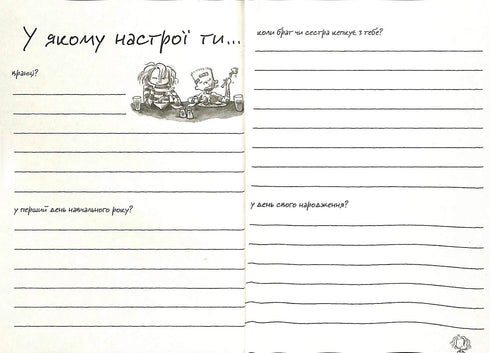 У якому настрої ти...
вранці?
у перший день навчального року?
коли брат чи сестра кепкує з тебе?
у день свого народження?